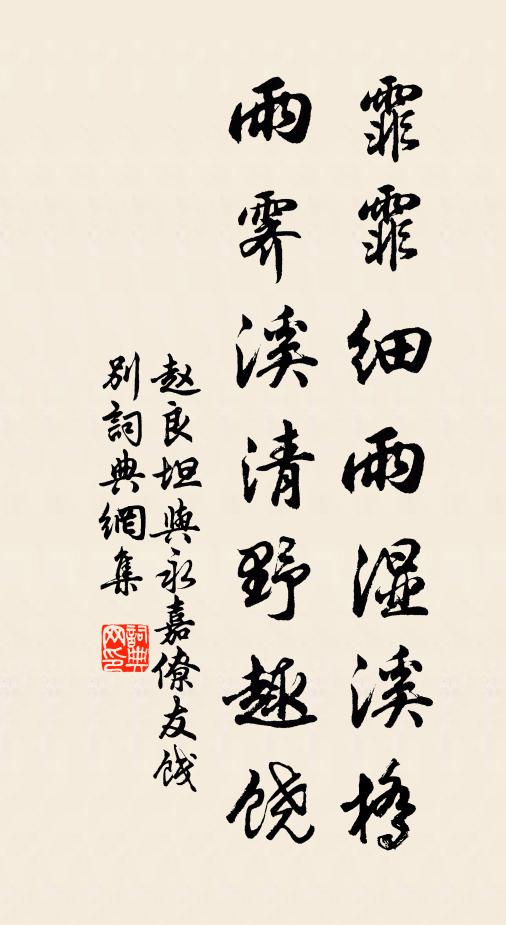 霏霏细雨湿溪橋
雨霁溪清野趣饶
赵良坦與永嘉僚友饯
别詞典網集
詞典网印